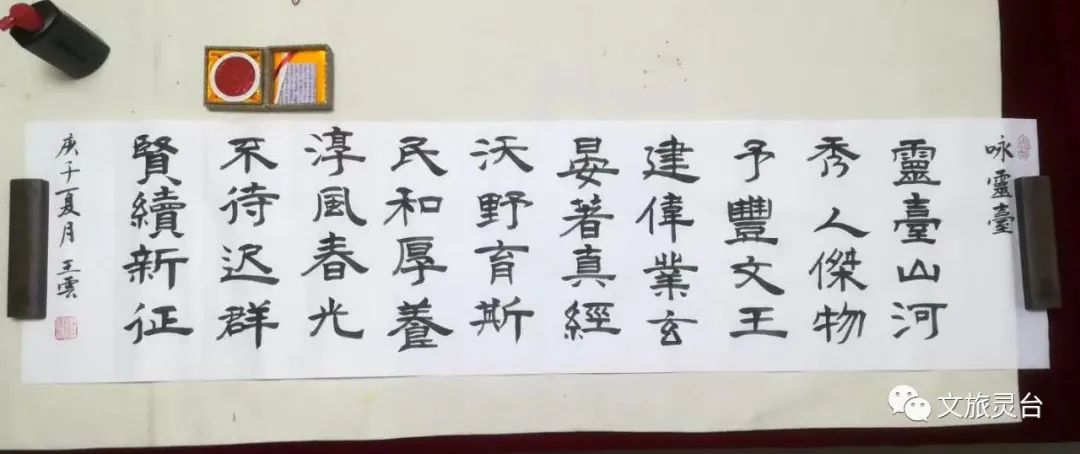 咏靈臺
靈臺山河
秀人傑物
予豐文王
建偉業玄
晏著真經
沃野育斯
民和厚養
淳風春光
不待迟群
賢續新征
庚子夏月 王雲
文旅灵台